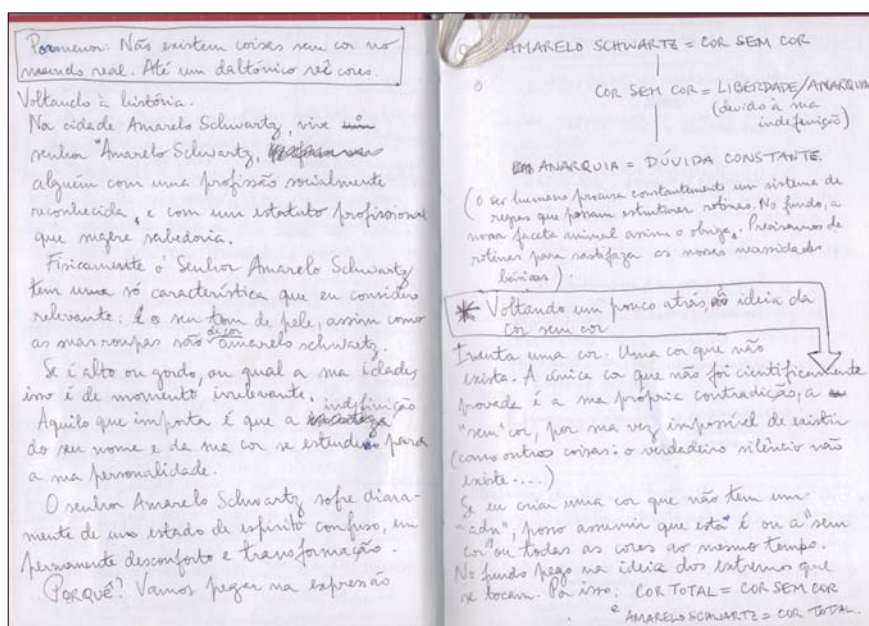 Pormenor: Não existem coisas sem cor no
mundo real. Até um daltónico vê cores.
Voltando à história.
Na cidade Amarelo Schwartz, vive um
senhor "Amarelo Schwartz,
alguém com uma profissão socialmente
reconhecida, e com um estatuto profissional
que sugere sabedoria.
Fisicamente o Senhor Amarelo Schwartz
tem uma só característica que eu considero
relevante: É o seu tom de pele, assim como
as suas roupas são de cor amarelo schwartz.
Se é alto ou gordo, ou qual a sua idade,
isso é de momento irrelevante.
Aquilo que importa é que a indefinição
do seu nome e da sua cor se estendem para
a sua personalidade.
O senhor Amarelo Schwartz sofre diara-
mente de um estado de espírito confuso, em
permanente desconforto e transformação.
PORQUÊ? Vamos pegar na expressão
AMARELO SCHWARTZ = COR SEM COR
COR SEM COR = LIBERDADE/ANARQUIA
(devido à sua
indefinição)
ANARQUIA = DÚVIDA CONSTANTE.
(O ser humano procura constantemente um sistema de
regras que possam estruturar rotinas. No fundo, a
nossa faceta animal assim o obriga. Precisamos de
rotinas para satisfazer as nossas necessidades
básicas).
* Voltando um pouco atrás, à ideia da
cor sem cor
Inventa uma cor. Uma cor que não
exista. A única cor que não foi cientificamente
provada é a sua própria contradição, a
"sem" cor, por sua vez impossível de existir
(como outras coisas: o verdadeiro silêncio não
existe....)
Se eu criar uma cor que não tem um
"adn", posso assumir que esta é ou a "sem
cor" ou todas as cores ao mesmo tempo.
No fundo pego na ideia dos extremos que
se tocam. Por isso: COR TOTAL = COR SEM COR
e AMARELO SCHWARTZ = COR TOTAL.